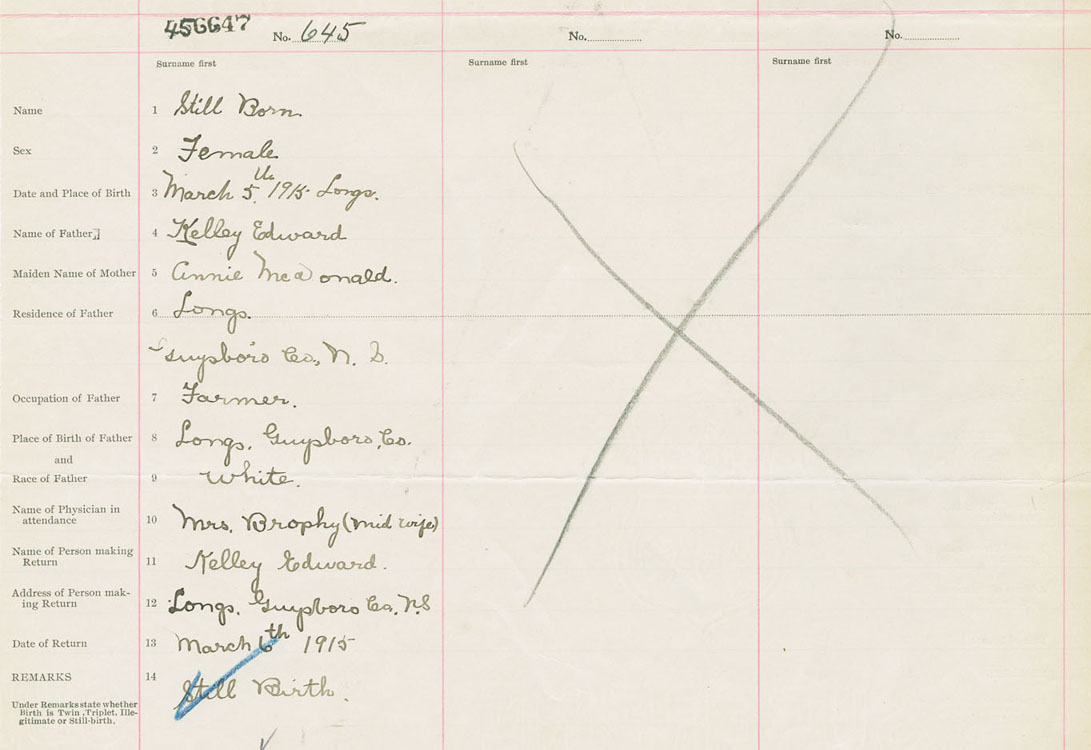 456647
No. 645
No.
No.
Surname first
Surname first
Surname first
Name 1 Still Born.
Sex 2 Female
Date and Place of Birth 3 March 5th 1915 Longs.
Name of Father 4 Kelley Edward
Maiden Name of Mother 5 Annie McDonald.
Residence of Father 6 Longs.
Guysboro Co., N. S.
Occupation of Father 7 Farmer.
Place of Birth of Father 8 Longs, Guysboro, Co.
and
Race of Father 9 White.
Name of Physician in
attendance 10 Mrs. Brophy (mid wife)
Name of Person making
Return 11 Kelley Edward.
Address of Person mak-
ing Return 12 Longs, Guysboro Co, N.S
Date of Return 13 March 6th 1915
REMARKS 14 Still Birth.
Under Remarks state whether
Birth is Twin, Triplet, Ille-
gitimate or Still-birth.